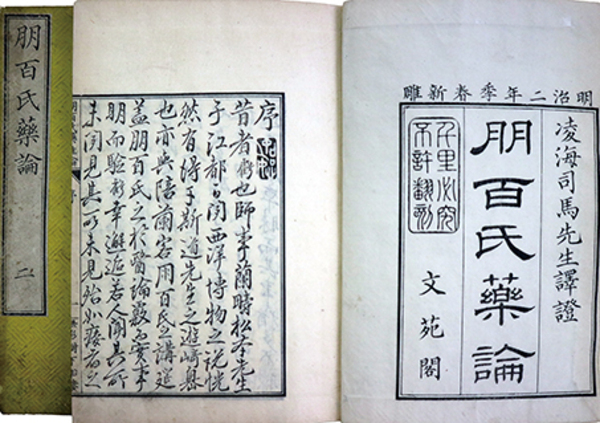 明治二年季春新雕
凌海司馬先生譯證
朋百氏藥論
千里必究
不許翻刻
文苑閣
序
昔者也師事蘭疇松本先生
于江都聞西洋博物之說恍
然有得于斯道先生之遊崎縣
也亦與陪朋百氏之講
蓋朋百氏之於醫論實事
明而驗幸邂逅若人聞其所
未聞見其所未見始如聾者之
朋百氏藥論
二